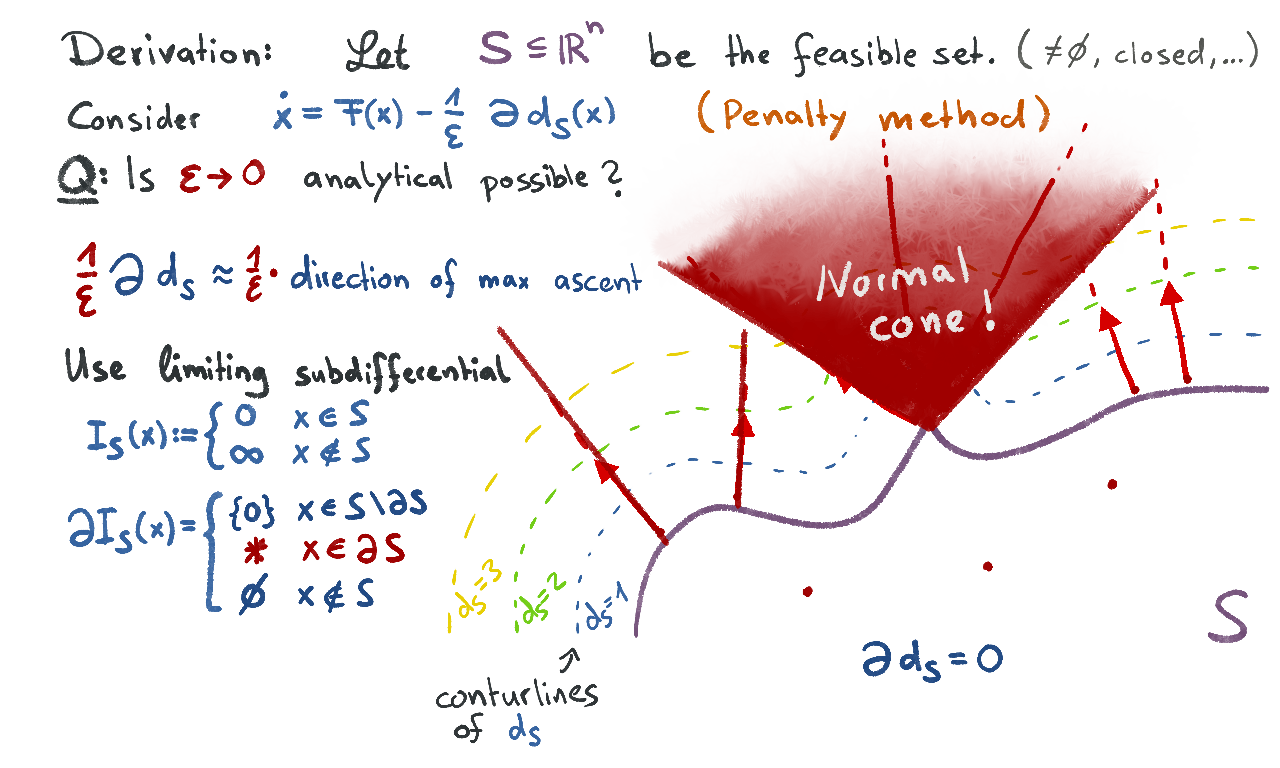 Derivation: Let S ⊆ ℝⁿ be the feasible set. (≠∅, closed,...)
Consider ẋ = F(x) - 1/ε ∂ dₛ(x) (Penalty method)
Q: Is ε → 0 analytical possible?
1/ε ∂ dₛ ≈ 1/ε · direction of max ascent
Normal
cone!
Use limiting subdifferential
Iₛ(x) := { 0 x ∈ S
∞ x ∉ S
∂Iₛ(x) = { {0} x ∈ S\∂S
* x ∈ ∂S
∅ x ∉ S
dₛ=3
dₛ=2
dₛ=1
S
∂ dₛ = 0
conturlines
of dₛ